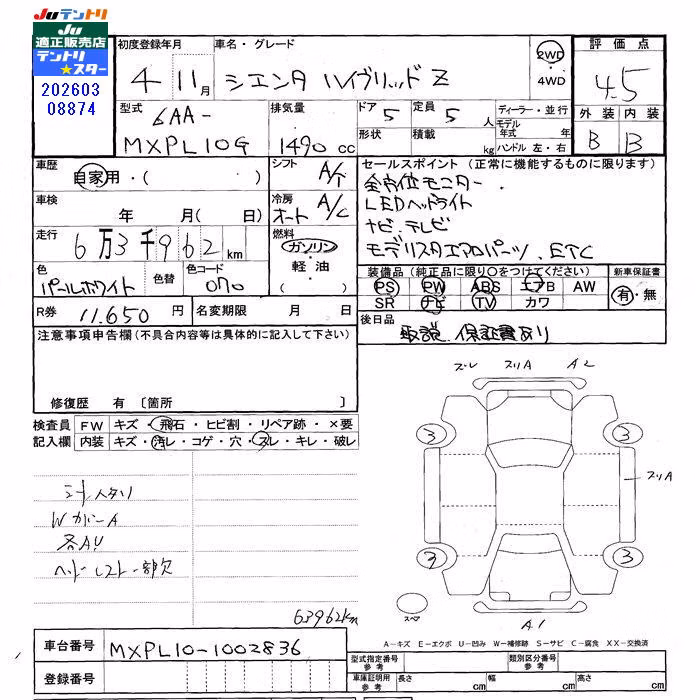 Juテントリ
Ju
適正販売店
テントリ
★スター
202603
08874
初度登録年月
4 11月
車名・グレード
シエンタ ハイブリッドZ
2WD
4WD
評価点
4.5
外装 内装
B B
型式
6AA-
MXPL10G
排気量
1490 cc
ドア 5
定員 5 人
形状
積載 kg
ディーラー・並行
モデル年式 年
ハンドル 左・右
車歴
自家用・( )
シフト A/T
車検
年 月( 日)
冷房 オート A/C
走行
6万3千962km
燃料
ガソリン
・軽油・
( )
色 パールホワイト
色替
色コード 070
R券 11,650 円
名変期限 月 日
セールスポイント(正常に機能するものに限ります)
全方位モニター.
LEDヘッドライト
ナビ.テレビ
モデリスタエアロパーツ.ETC
装備品(純正品に限り○をつけてください)
PS PW ABS エアB AW
SR ナビ TV カワ
新車保証書
有・無
後日品
取説.保証書あり
注意事項申告欄(不具合内容等は具体的に記入して下さい)
修復歴 有 〔箇所 〕
検査員記入欄
FW キズ・飛石・ヒビ割・リペア跡・×要
内装 キズ・汚レ・コゲ・穴・スレ・キレ・破レ
シートヘタリ
WカバーA
各AU
ヘッドレスト一部欠
63962km
ズレ スリA A2
3 3
スリA
3 3
スペア
A1
A-キズ E-エクボ U-凹み W-補修跡 S-サビ C-腐食 XX-交換済
車台番号 MXPL10-1002836
登録番号
型式指定番号参考
類別区分番号参考
車庫証明用参考 長さ cm 幅 cm 高さ cm